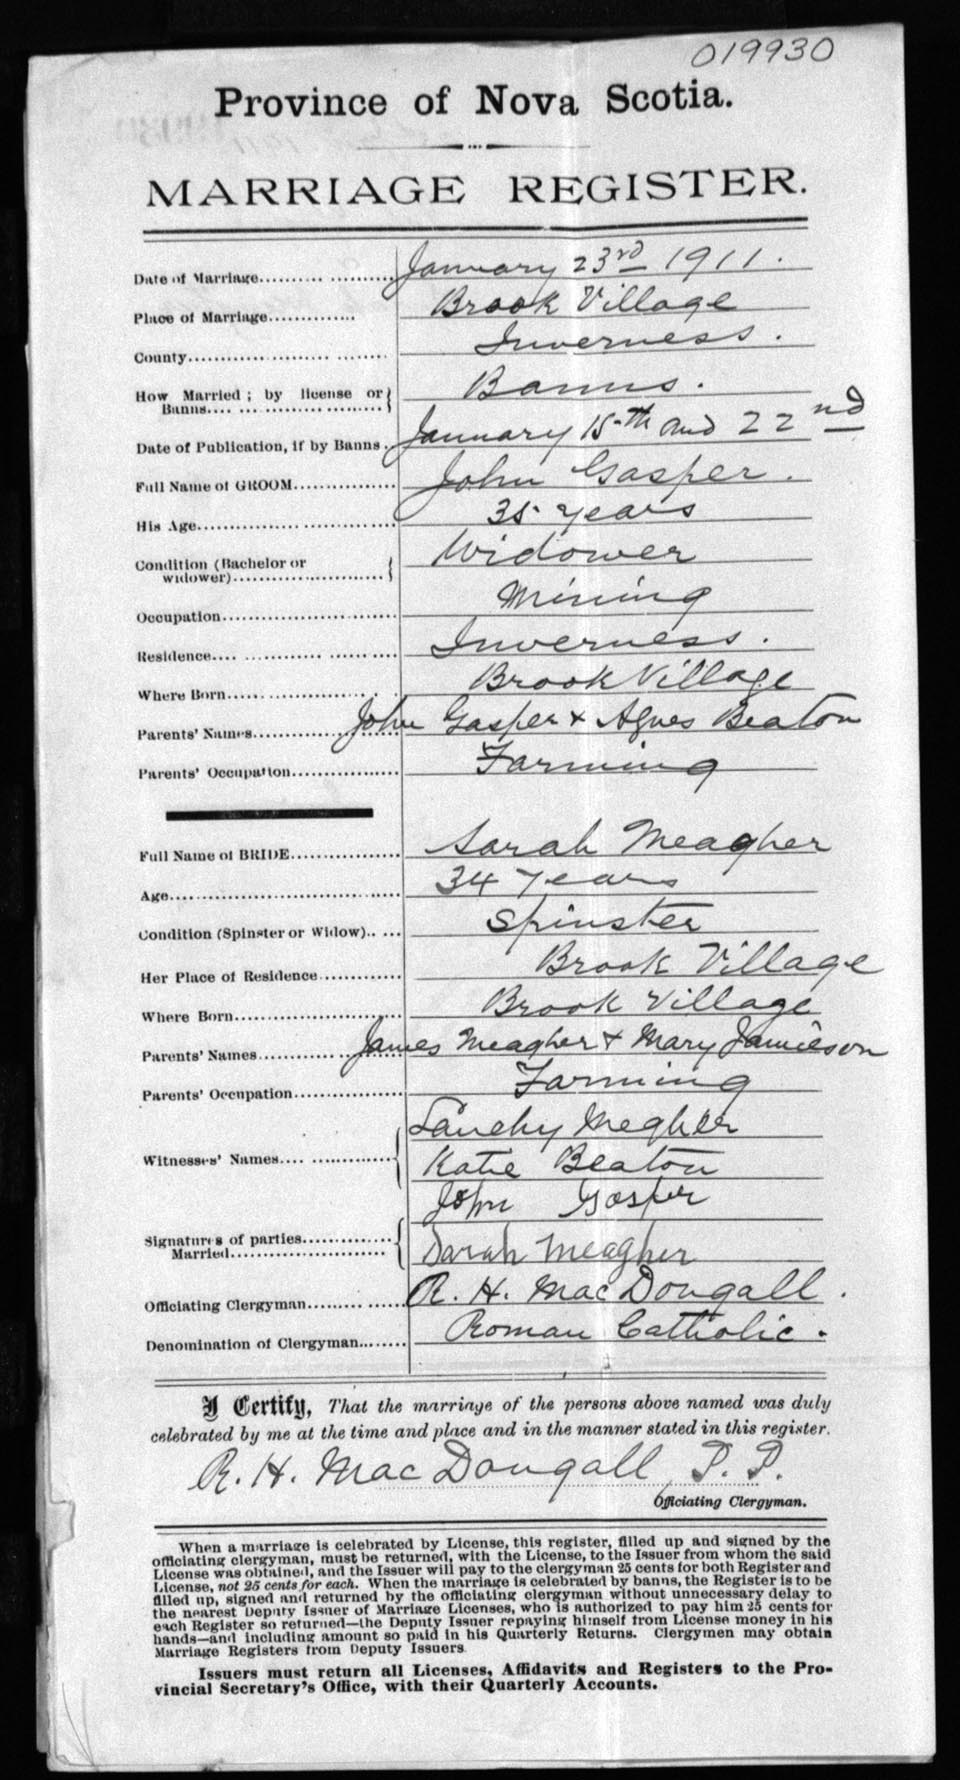 019930
Province of Nova Scotia.
MARRIAGE REGISTER.
Date of Marriage.......... .......... January 23rd 1911.
Place of Marriage.............. Brook Village
County.................. ........ Inverness.
How Married; by license or Banns.... ... ............ ........... Banns.
Date of Publication, if by Banns. January 15th and 22nd
Full Name of GROOM................. John Gasper.
His Age................................. 35 years
Condition (Bachelor or widower)......................... Widower
Occupation............................. Mining
Residence.... ............ ...... ..... Inverness.
Where Born........................ . Brook Village
Parents' Names...................... John Gasper & Agnes Beaton
Parents' Occupation.................. Farming
Full Name of BRIDE................... Sarah Meagher
Age...................................... 34 years
Condition (Spinster or Widow).. .... Spinster
Her Place of Residence.............. Brook Village
Where Born............................ Brook Village
Parents' Names........................ James Meagher & Mary Jamieson
Parents' Occupation.................. Farming
Lauchy Megher
Witnesses' Names.... ................ Katie Beaton
John Gasper
Signatures of parties Married......................... Sarah Meagher
Officiating Clergyman......... ......... R. H. MacDougall.
Denomination of Clergyman....... Roman Catholic.
I Certify, That the marriage of the persons above named was duly
celebrated by me at the time and place and in the manner stated in this register.
R. H. MacDougall, P. P.
Officiating Clergyman.
When a marriage is celebrated by License, this register, filled up and signed by the
officiating clergyman, must be returned, with the License, to the Issuer from whom the said
License was obtained, and the Issuer will pay to the clergyman 25 cents for both Register and
License, not 25 cents for each. When the marriage is celebrated by banns, the Register is to be
filled up, signed and returned by the officiating clergyman without unnecessary delay to
the nearest Deputy Issuer of Marriage Licenses, who is authorized to pay him 25 cents for
each Register so returned—the Deputy Issuer repaying himself from License money in his
hands—and including amount so paid in his Quarterly Returns. Clergymen may obtain
Marriage Registers from Deputy Issuers
Issuers must return all Licenses, Affidavits and Registers to the Pro-
vincial Secretary's Office, with their Quarterly Accounts.